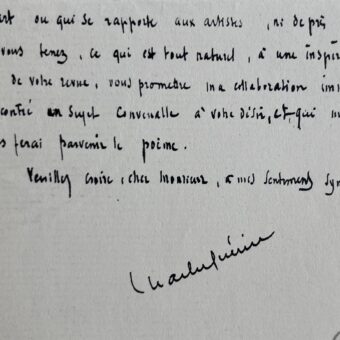 art ou qui se rapporte aux artistes, ni de près
vous tenez, ce qui est tout naturel, à une inspir
de votre revue, vous promettre ma collaboration imm
contré un sujet convenable à votre désir, et qui m
s ferai parvenir le poème.
Veuillez croire, cher Monsieur, à mes sentiments sym
Charles Guérin